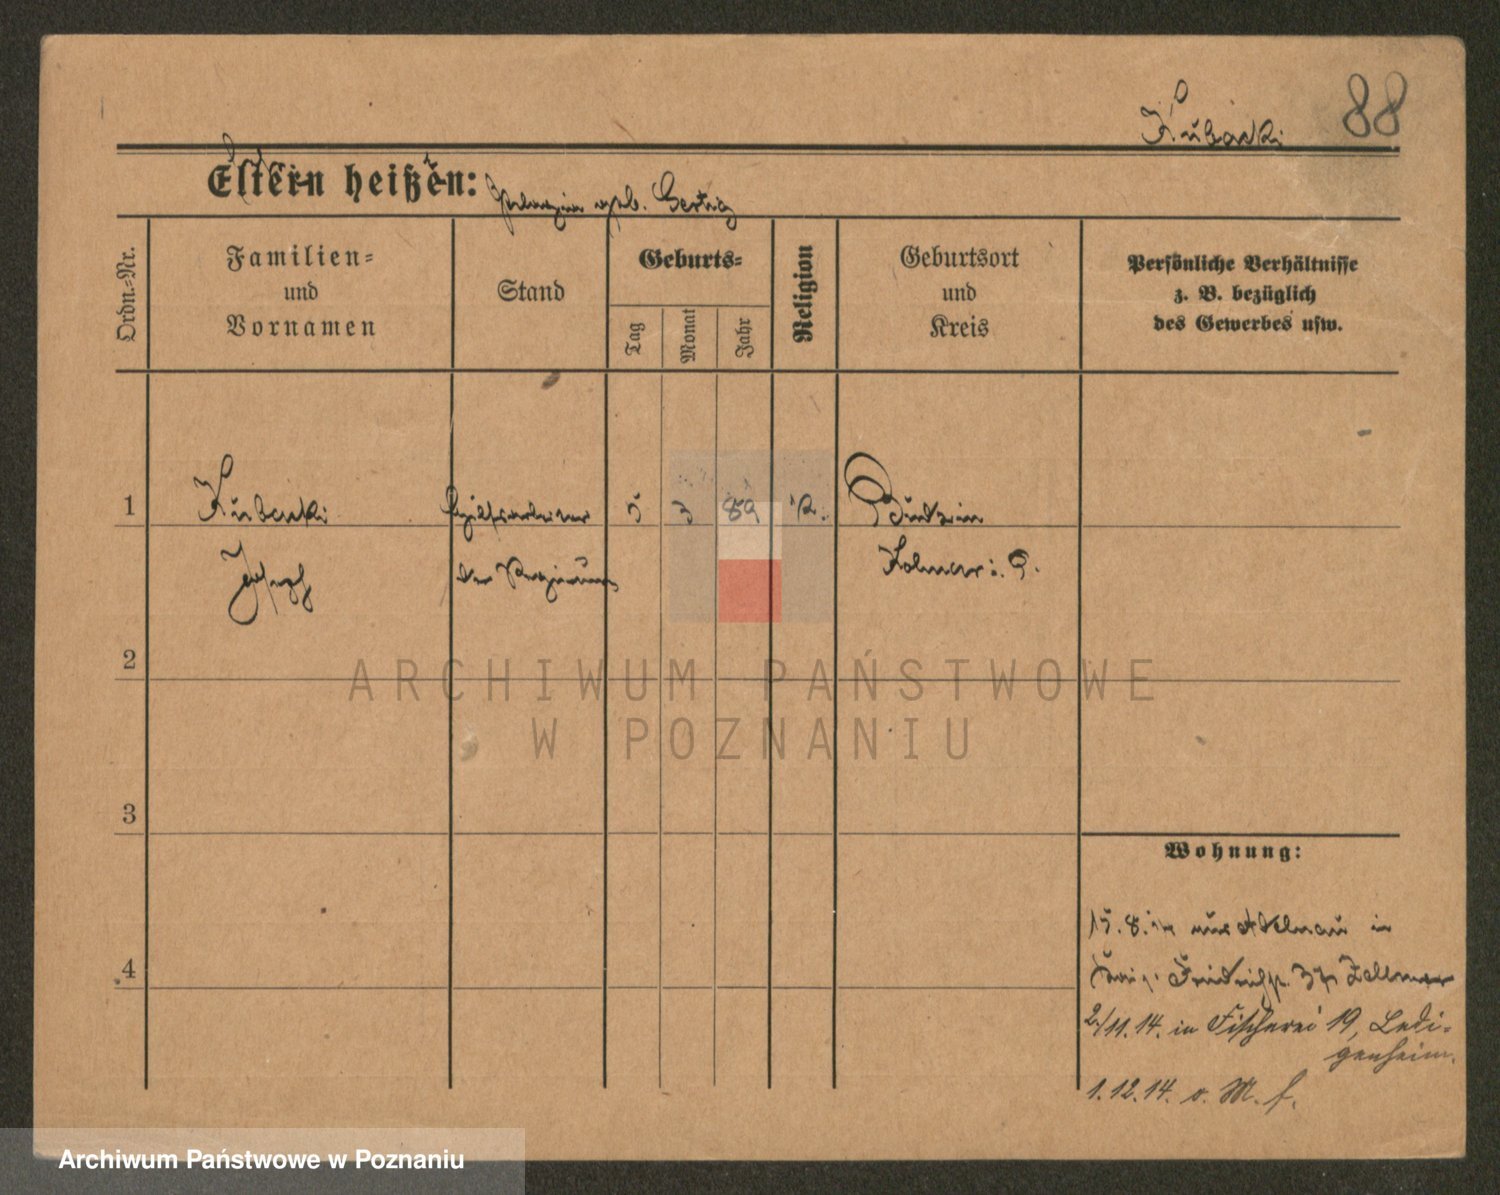 88
Kubacki
Eltern heißen:
geb. Gertig
Ordn.-Nr.
Familien-
und
Vornamen
Stand
Geburts-
Tag
Monat
Jahr
Religion
Geburtsort
und
Kreis
Persönliche Verhältnisse
z. B. bezüglich
des Gewerbes usw.
1
Kubacki Hilfsarbeiter 5 3 89 k. Budsin
Joseph der Regierung Kolmar i. P.
2
ARCHIWUM PAŃSTWOWE
W POZNANIU
3
Wohnung:
4
15.8.14 aus Adelnau in
37
2/11.14. in Fischerei 19, Ledi-
genheim.
1.12.14. v. M. f.
Archiwum Państwowe w Poznaniu